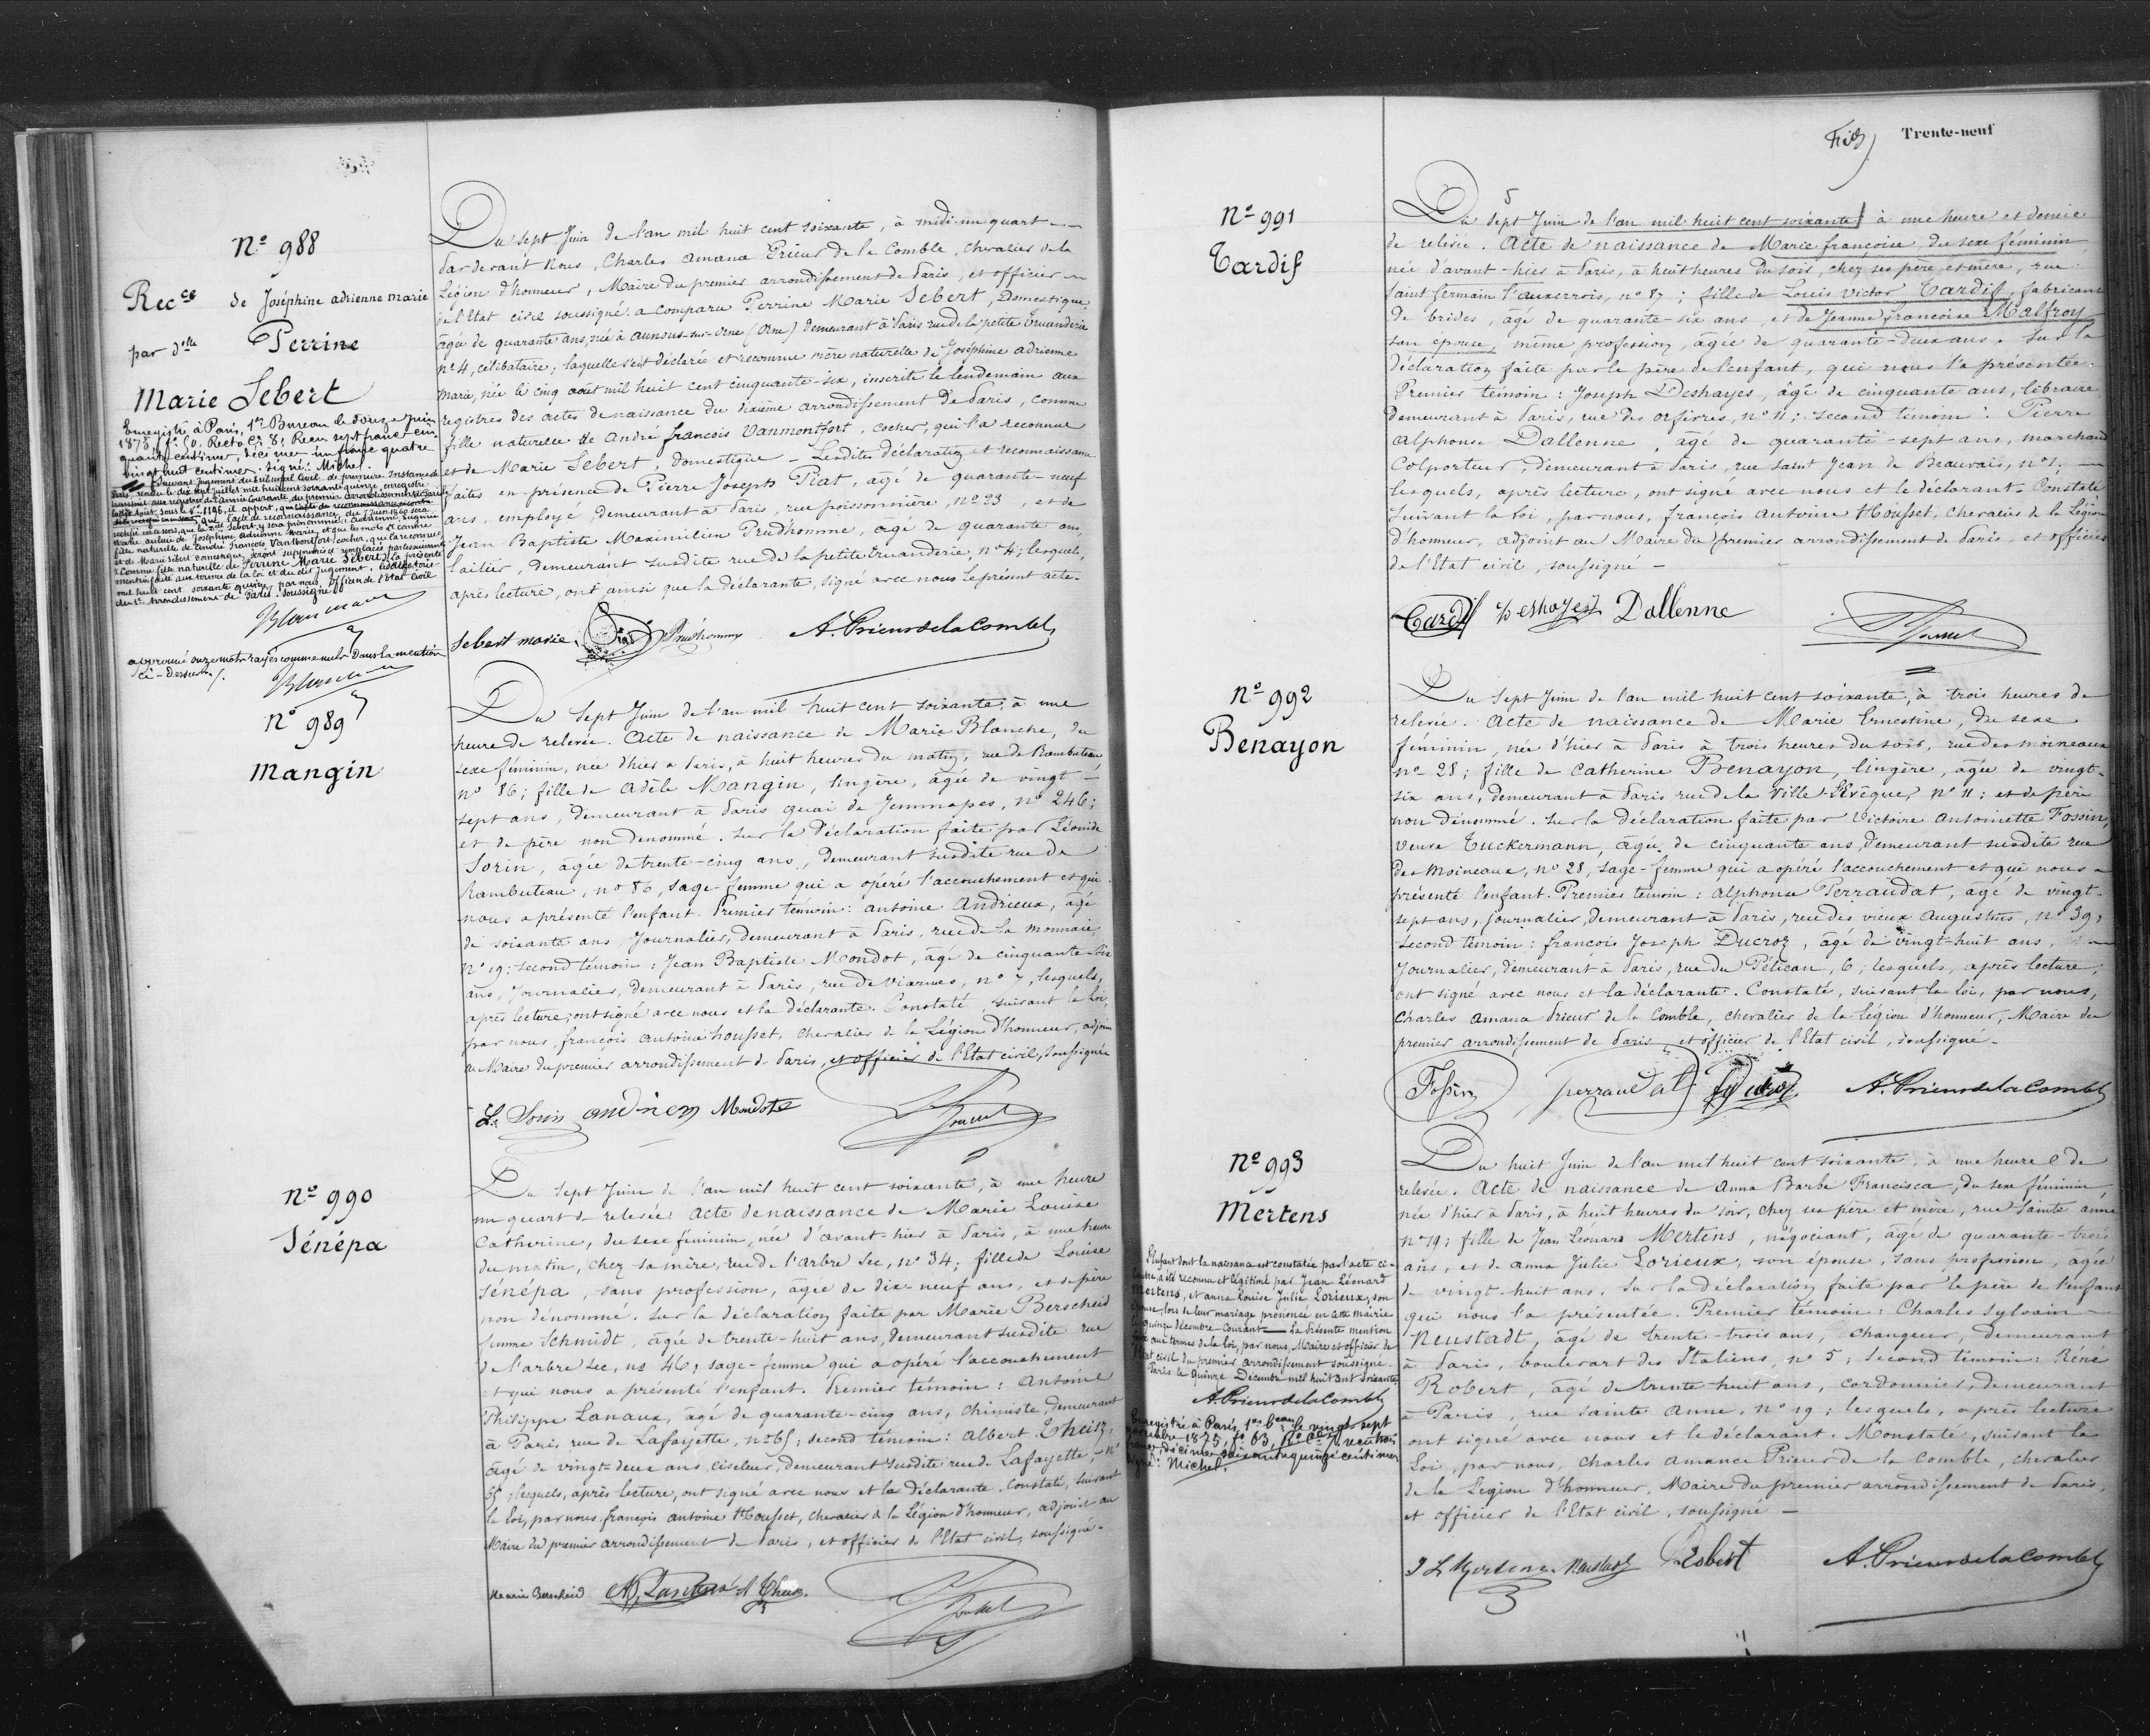 Nº 988
Recce de Joséphine adrienne marie
Perrine
par delle
Marie Sebert
Enregistré à Paris, 1er Bureau le douze Juin
1875, fº 60, Recto Cse 8, Reçu sept francs cin
quante centimes, décimes un franc quatre
vingt huit centimes. Signé: Michel.
Suivant Jugement du tribunal Civil de première Instance de
Paris, rendu le dix sept juillet mil huit cent soixante quinze, enregistré
approuvé onze mots rayés comme nuls dans la mention
ci-dessus ./.
Du sept Juin de l'an mil huit cent soixante, à midi un quart
Pardevant Nous, Charles Amana Prieur de la Comble, Chevalier de la
Légion d'honneur, Maire du premier arrondissement de Paris, et officier
de l'Etat civil soussigné. a comparu Perrine Marie Sebert, Domestique,
âgée de quarante ans, née à aunous-sur-orne (Orne) demeurant à Paris rue de la petite truanderie
nº 4, célibataire; laquelle s'est déclarée et reconnue mère naturelle de Joséphine adrienne
marie, née le cinq août mil huit cent cinquante-six, inscrite le lendemain aux
registres des actes de naissance du sixième arrondissement de Paris, comme
fille naturelle de André françois Vanmontfort, cocher, qui l'a reconnue
et de Marie Sebert, domestique - Lesdites déclaration et reconnaissance
faites en présence de Pierre Joseph Piat, âgé de quarante-neuf
ans, employé, demeurant à Paris, rue poissonnière, nº 23 et de
Jean Baptiste Maximilien Prudhomme, âgé de quarante ans,
laitier, demeurant susdite rue de la petite truanderie, nº 4; lesquels,
après lecture, ont, ainsi que la déclarante, signé avec nous le présent acte.
Sebert marie Piat Prudhomme A. Prieur de la Comble
Nº 989
Mangin
Du Sept Juin de l'an mil huit cent soixante, à une
heure de relevée. Acte de naissance de Marie Blanche, du
sexe féminin, née d'hier à Paris, à huit heures du matin, rue de Rambuteau
nº 86; fille de Adèle Mangin, lingère, âgée de vingt-
sept ans, demeurant à Paris quai de Jemmapes, nº 246;
et de père non dénommé. Sur la Déclaration faite par Léonide
Sorin, âgée de trente-cinq ans, demeurant susdite rue de
Rambuteau, nº 86, sage-femme qui a opéré l'accouchement et qui
nous a présenté l'enfant. Premier témoin: antoine Andrieux, âgé
de soixante ans, Journalier, demeurant à Paris, rue de la monnaie,
Nº 19; second témoin: Jean Baptiste Mondot, âgé de cinquante-six
ans, Journalier, demeurant à Paris, rue de Viarmes, nº 7, lesquels,
après lecture, ont signé avec nous et la déclarante. Constaté, suivant la Loi,
par nous, françois Antoine housset, chevalier de la Légion d'honneur, adjoint
au Maire du premier arrondissement de Paris, et officier de l'Etat civil, soussigné
Le Sorin andrieux Mondot
Nº 990
Sénépa
Du Sept Juin de l'an mil huit cent soixante, à une heure
un quart de relevée. Acte de naissance de Marie Louise
Catherine, du sexe féminin, née d'avant-hier à Paris, à une heure
du matin, chez sa mère, rue de l'arbre Sec, nº 34; fille de Louise
Sénépa, sans profession, âgée de dix neuf ans, et de père
non dénommé. Sur la déclaration faite par Marie Berscheid
femme Schmidt, âgée de trente-huit ans, demeurant susdite rue
de l'arbre Sec, nº 46, sage-femme qui a opéré l'accouchement
et qui nous a présenté l'enfant. Premier témoin: Antoine
Philippe Lanaux, âgé de quarante-cinq ans, chimiste, demeurant
à Paris rue de Lafayette, nº 65; second témoin: Albert Theisz,
âgé de vingt-deux ans, ciseleur, demeurant susdite rue de Lafayette, nº
65; lesquels, après lecture, ont signé avec nous et la déclarante. Constaté, suivant
la loi, par nous, françois antoine Housset, chevalier de la Légion d'honneur, adjoint au
Maire du premier arrondissement de Paris, et officier de l'Etat civil, soussigné.
Marie Berscheid
Trente-neuf
Nº 991
Tardif
5
Du sept Juin de l'an mil huit cent soixante, à une heure et demie
de relevée. Acte de naissance de Marie françoise, du sexe féminin
née d'avant-hier à Paris, à huit heures du soir, chez ses père et mère, rue
Saint Germain l'auxerrois, nº 87; fille de Louis Victor Tardif, fabricant
de brides, âgé de quarante-six ans, et de Jeanne françoise Malfroy
son épouse, même profession, âgée de quarante-deux ans. Sur la
déclaration faite par le père de l'enfant, qui nous l'a présentée.
Premier témoin: Joseph Deshayes, âgé de cinquante ans, libraire
demeurant à Paris, rue des orfèvres, nº 11; second témoin: Pierre
alphonse Dallenne, âgé de quarante-sept ans, marchand
Colporteur, demeurant à Paris, rue Saint Jean de Beauvais, nº 1,
lesquels, après lecture, ont signé avec nous et le déclarant. Constaté
suivant la loi, par nous, françois Antoine Housset, chevalier de la Légion
d'honneur, adjoint au Maire du premier arrondissement de Paris, et officier
de l'Etat civil, soussigné -
Tardif Deshayes Dallenne
Nº 992
Benayon
Du Sept Juin de l'an mil huit cent soixante, à trois heures de
relevée. Acte de naissance de Marie Ernestine, du sexe
féminin, née d'hier à Paris à trois heures du soir, rue des moineaux
nº 28; fille de Catherine Benayon, lingère, âgée de vingt-
six ans, demeurant à Paris rue de la Ville-l'Evêque, nº 11: et de père
non dénommé. Sur la déclaration faite par Victoire antoinette Fossin,
veuve Tuckermann, âgée de cinquante ans, demeurant susdite rue
des moineaux, nº 28, sage-femme qui a opéré l'accouchement et qui nous a
présenté l'enfant. Premier témoin: alphonse Perraudat, âgé de vingt-
sept ans, journalier, demeurant à Paris, rue des vieux augustins, nº 39;
second témoin: françois Joseph Ducroz, âgé de vingt-huit ans,
Journalier, demeurant à Paris, rue du Pélican, 6; lesquels, après lecture,
ont signé avec nous et la déclarante. Constaté, suivant la loi, par nous,
Charles Amana Prieur de la Comble, chevalier de la légion d'honneur, Maire du
premier arrondissement de Paris, et officier de l'Etat civil, soussigné.
Fossin perraudat A. Prieur de la Comble
Nº 993
Mertens
L'enfant dont la naissance est constatée par l'acte ci-
contre, a été reconnu et légitimé par Jean Léonard
Mertens, et anna Louise Julie Lorieux, son
épouse, lors de leur mariage prononcé en cette mairie
le quinze décembre courant. La présente mention
faite aux termes de la loi, par nous, Maire et officier de
l'Etat civil du premier arrondissement soussigné.
Paris le quinze Décembre mil huit cent soixante
A. Prieur de la Comble
Enregistré à Paris, 1er beau le vingt sept
Michel.
Du huit Juin de l'an mil huit cent soixante, à une heure de
relevée. Acte de naissance de Anna Barbe Francisca, du sexe féminin,
née d'hier à Paris, à huit heures du soir, chez ses père et mère, rue Sainte anne
nº 19; fille de Jean Léonard Mertens, négociant, âgé de quarante-trois
ans, et de anna Julie Lorieux, son épouse, sans profession, âgée
de vingt-huit ans. Sur la déclaration faite par le père de l'enfant
qui nous l'a présentée. Premier témoin: Charles Sylvain
Neustadt, âgé de trente-trois ans, changeur, demeurant
à Paris, boulevart des Italiens, nº 5; second témoin: Réné
Robert, âgé de trente huit ans, cordonnier, demeurant
à Paris, rue Sainte Anne, nº 19; lesquels, après lecture
ont signé avec nous et le déclarant. Constaté, suivant la
Loi, par nous, Charles Amance Prieur de la Comble, chevalier
de la Légion d'honneur, Maire du premier arrondissement de Paris,
et officier de l'Etat civil, soussigné -
J L Mertens Neustadt Robert A. Prieur de la Comble